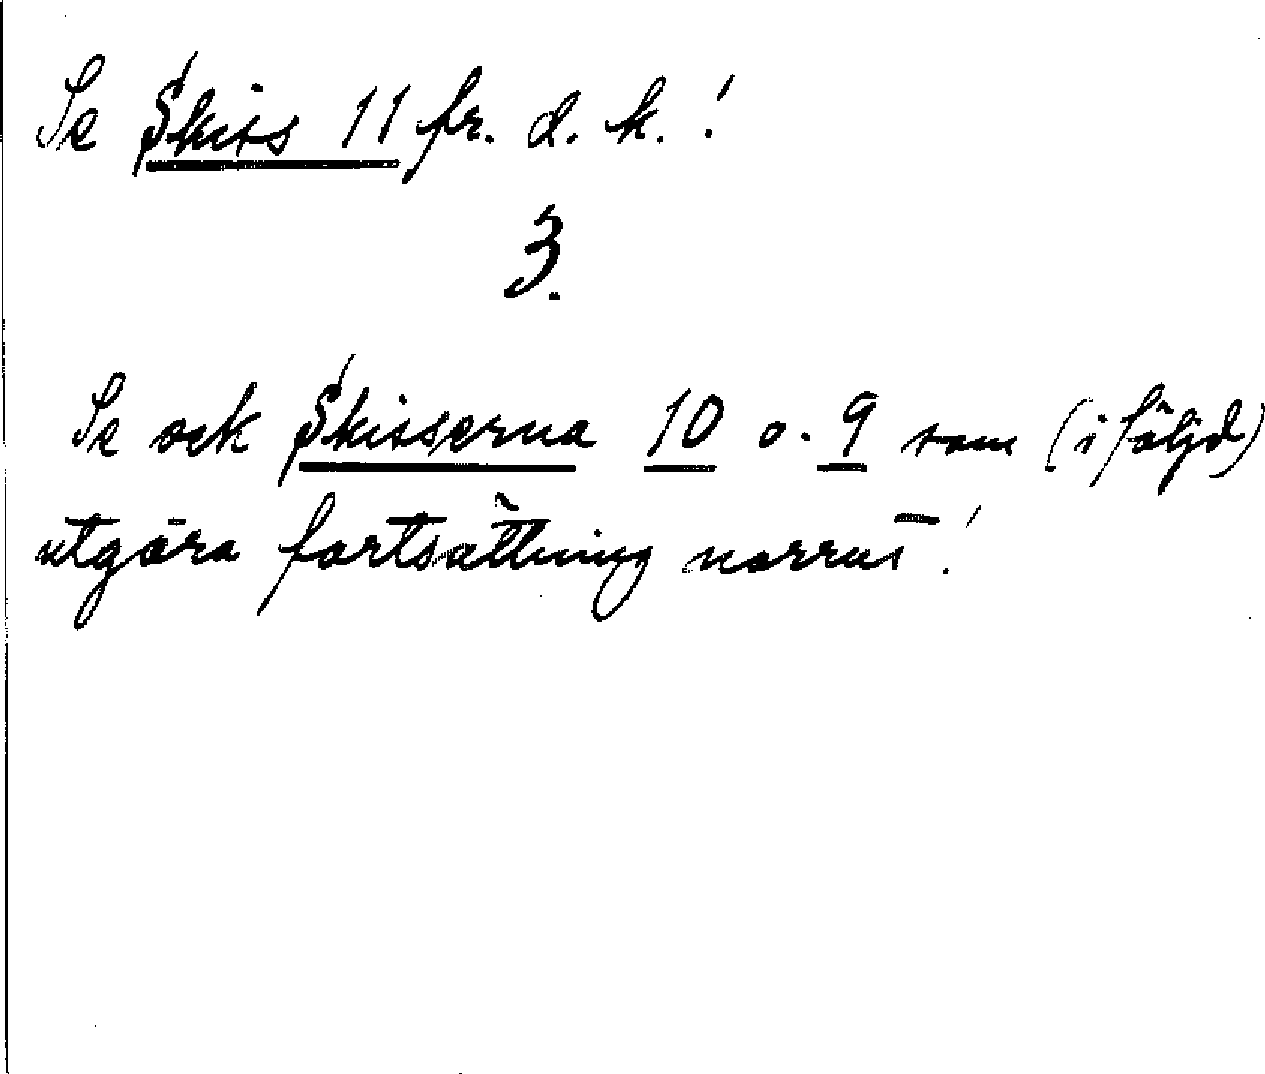 Se Skiss 11 fr. d. k.!
3.
Se ock Skisserna 10 o. 9 som (i följd)
utgöra fortsättning norrut!